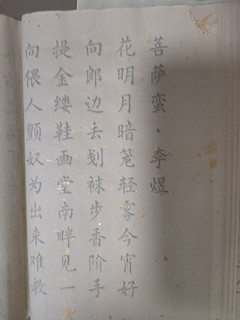 菩萨蛮·李煜
花明月暗笼轻雾今宵好
向郎边去刬袜步香阶手
提金缕鞋画堂南畔见一
向偎人颤奴为出来难教